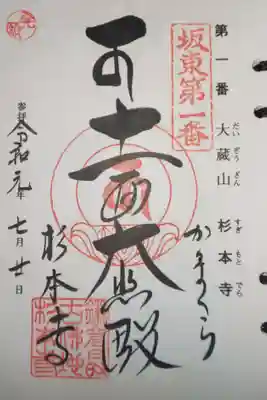 第一番 大蔵山 杉本寺
だいぞうざん すぎもとでら
坂東第一番
かまくら
十一面大悲殿
杉本寺
参拝 令和元年 七月廿日